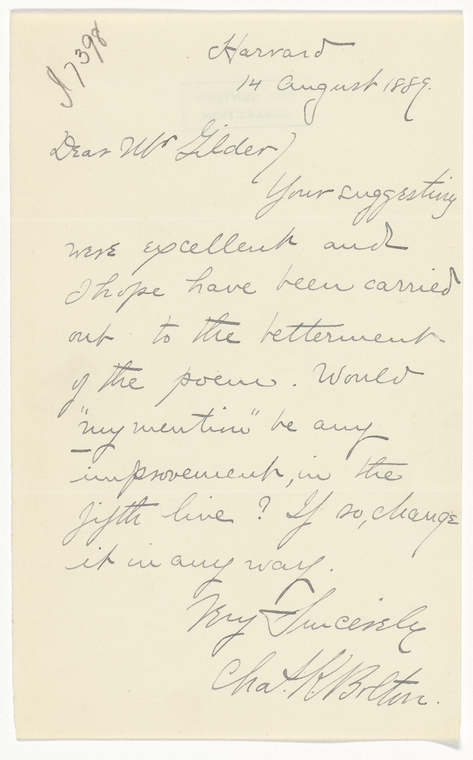 A7398
Harvard
14 August 1889.
Dear Mr Gilder,
Your suggestions
were excellent and
I hope have been carried
out to the betterment
of the poem. Would
"my mention" be any
improvement, in the
fifth line? If so, change
it in any way.
Very Sincerely
Chas. K. Bolton.